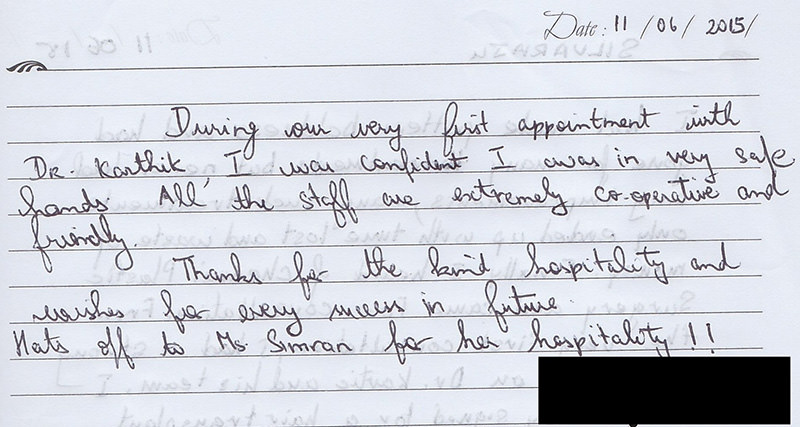 Date : 11 / 06 / 2015 /
During our very first appointment with
DR. Karthik, I was confident I was in very safe
hands. All the staff are extremely co-operative and
friendly.
Thanks for the kind hospitality and
wishes for every success in future.
Hats off to Ms. Simran for her hospitality !!